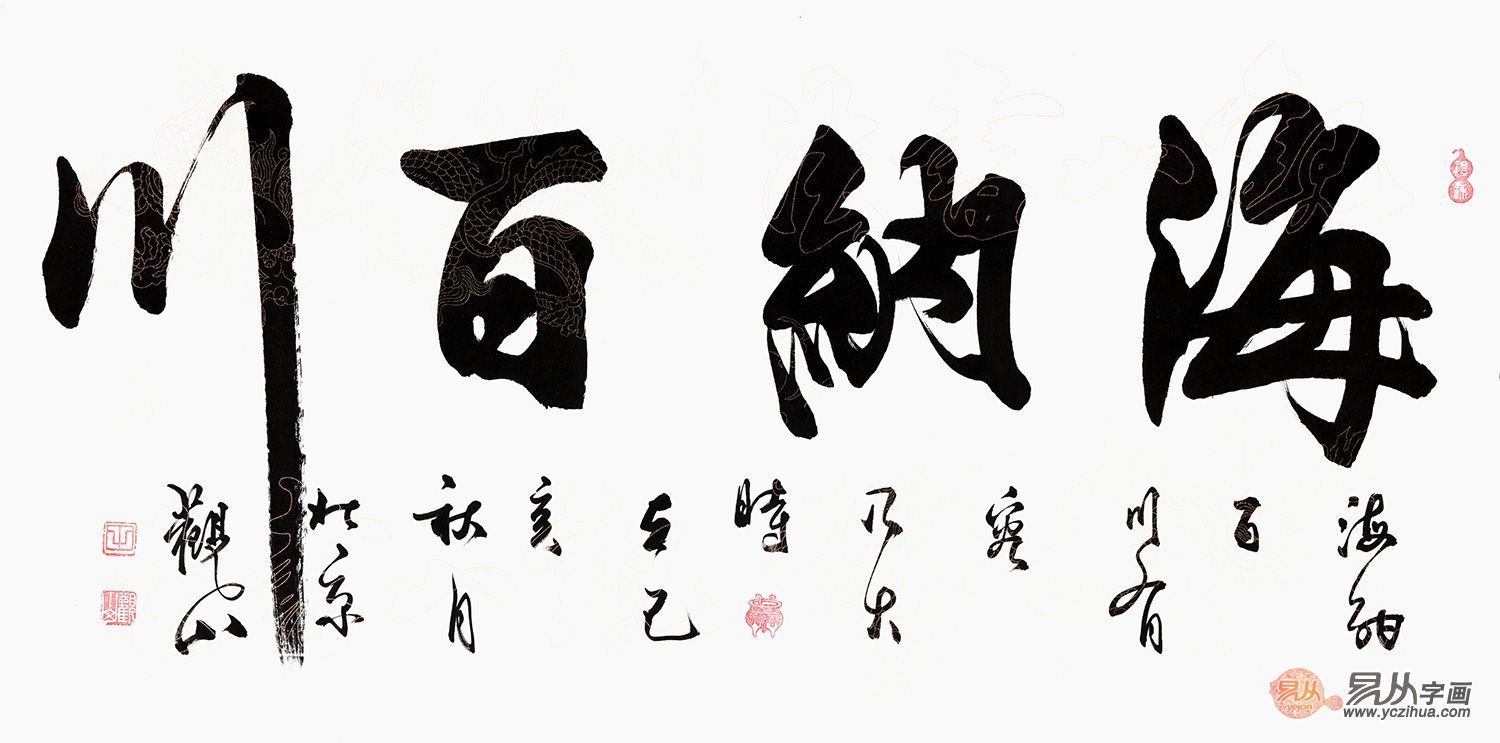 海納百川
海納
百
川有
容
乃大
時
在己
亥
秋月
於京
觀山
觀山
易从
yicon
易从字画
www.yczihua.com